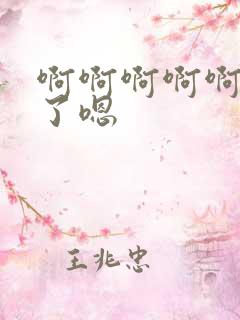 啊啊啊啊啊
了嗯
王兆忠